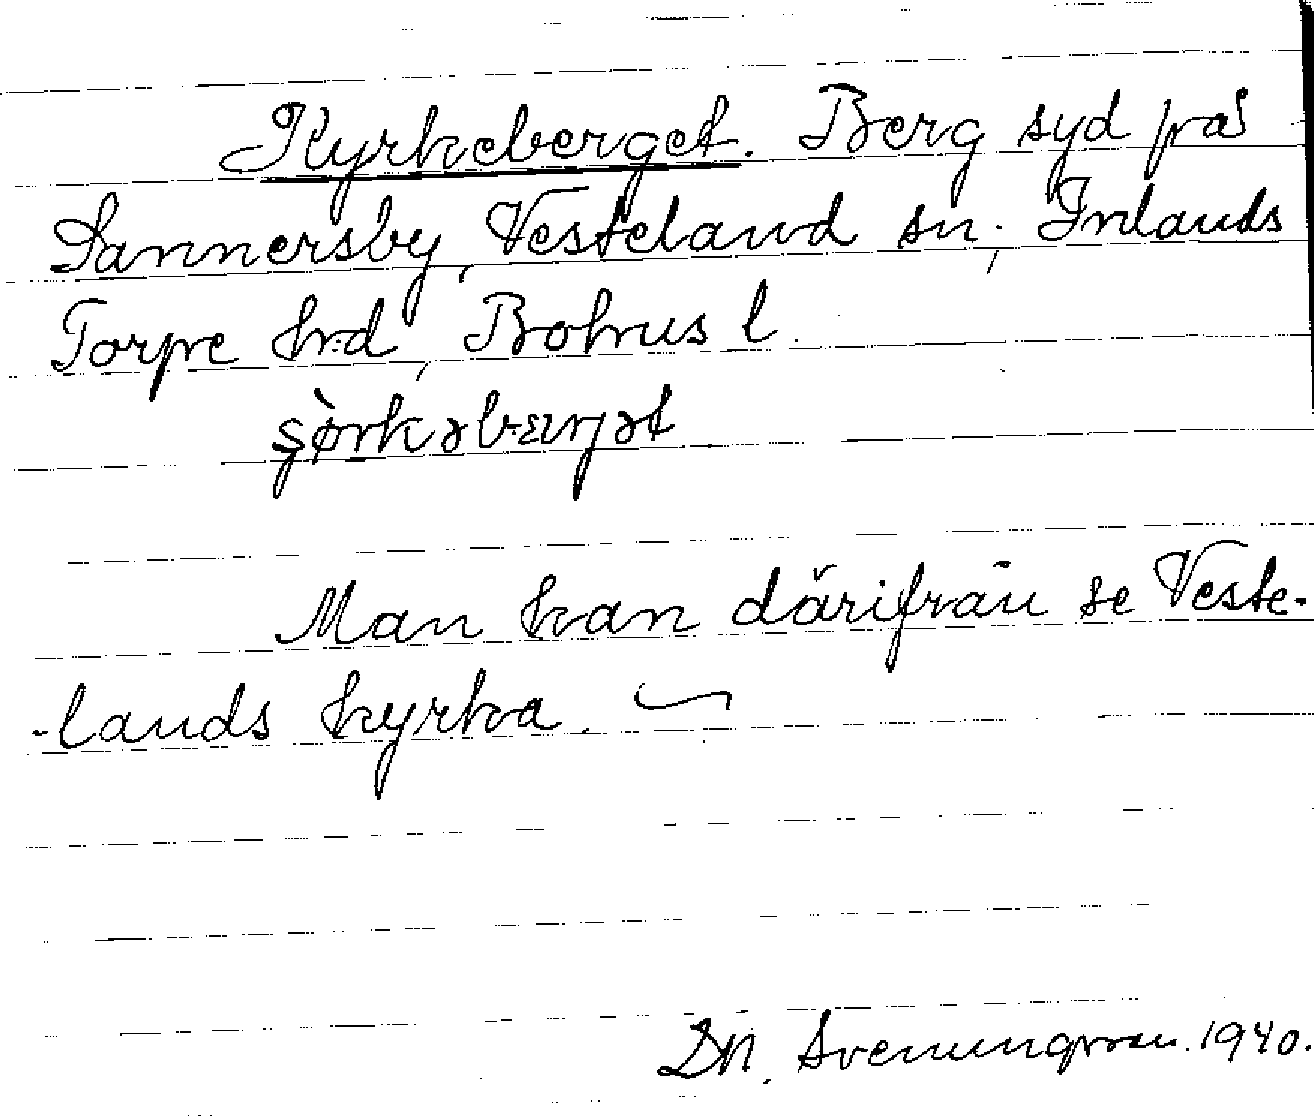 Kyrkeberget. Berg syd på
Sannersby, Vesteland sn., Inlands
Torpe hrd, Bohus l.
Man kan därifrån se Veste-
-lands kyrka.
Svenungsson. 1940.